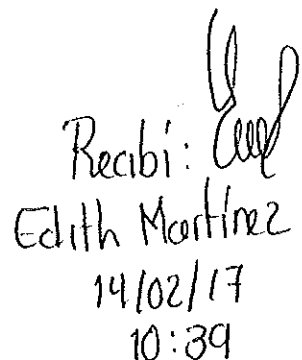 Recibí:
Edith Martínez
14/02/17
10:39